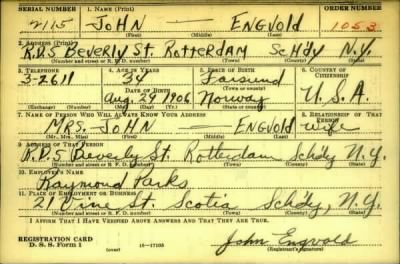 SERIAL NUMBER 1. NAME (Print) ORDER NUMBER
2115 JOHN — ENGVOLD 1053
(First) (Middle) (Last)
2. ADDRESS (Print)
R.D.5 BEVERLY ST. ROTTERDAM SCHDY N.Y.
(Number and street or R. F. D. number) (Town) (County) (State)
3. TELEPHONE 4. AGE IN YEARS 5. PLACE OF BIRTH 6. COUNTRY OF CITIZENSHIP
3-2611 34 Farsund
DATE OF BIRTH (Town or county)
Aug. 29 1906 Norway U.S.A.
(Exchange) (Number) (Mo.) (Day) (Yr.) (State or country)
7. NAME OF PERSON WHO WILL ALWAYS KNOW YOUR ADDRESS 8. RELATIONSHIP OF THAT PERSON
MRS. JOHN — ENGVOLD wife
(Mr., Mrs., Miss) (First) (Middle) (Last)
9. ADDRESS OF THAT PERSON
R.D.5 Beverly St. Rotterdam Schdy N.Y.
(Number and street or R. F. D. number) (Town) (County) (State)
10. EMPLOYER'S NAME
Raymond Parks
11. PLACE OF EMPLOYMENT OR BUSINESS
21 Vine St. Scotia Schdy, N.Y.
(Number and street or R. F. D. number) (Town) (County) (State)
I AFFIRM THAT I HAVE VERIFIED ABOVE ANSWERS AND THAT THEY ARE TRUE.
REGISTRATION CARD
D. S. S. Form 1 (over) 16-17105 John Engvold